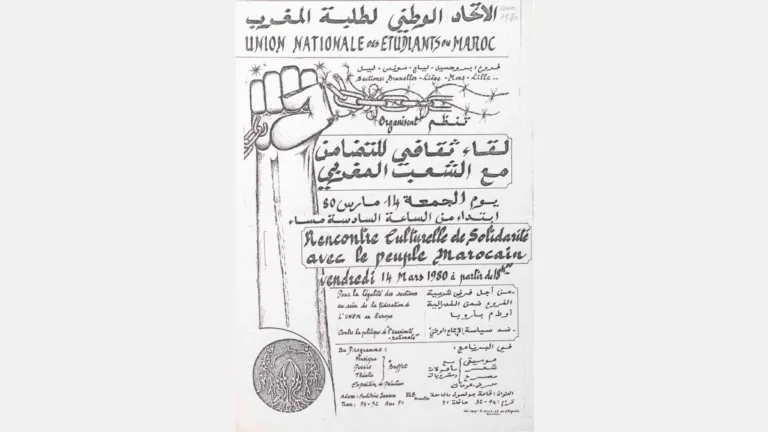 الاتحاد الوطني لطلبة المغرب
UNION NATIONALE des ETUDIANTS du MAROC
فروع: بروكسيل - لياج - مونس - ليل
Sections: Bruxelles - Liège - Mons - Lille..
Organisent تنظم
لقاء ثقافي للتضامن
مع الشعب المغربي
يوم الجمعة 14 مارس 80
ابتداء من الساعة السادسة مساء
Rencontre Culturelle de Solidarité
avec le peuple Marocain
Vendredi 14 Mars 1980 à partir de 18h
Pour la légalité des sections
au sein de la fédération de
L'UNEM en Europe
Contre la politique de "l'unanimité
nationale"
- من أجل فرض شرعية
الفروع ضمن الفدرالية
أوطم بأروبا
- ضد سياسة "الإجماع الوطني"
Au Programme:
Musique
Poésie
Théatre
Buffet
Exposition de Peintures
في البرنامج:
موسيقى
شعر
مسرح
مع
مأكولات
ومشروبات
Adresse: Auditoire Janson ULB
Bruxelles
Tram: 94-92